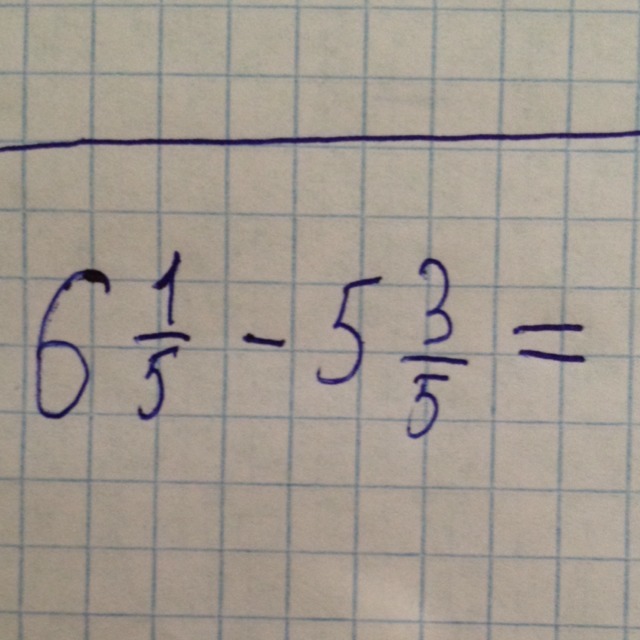 6 1/5 - 5 3/5 =